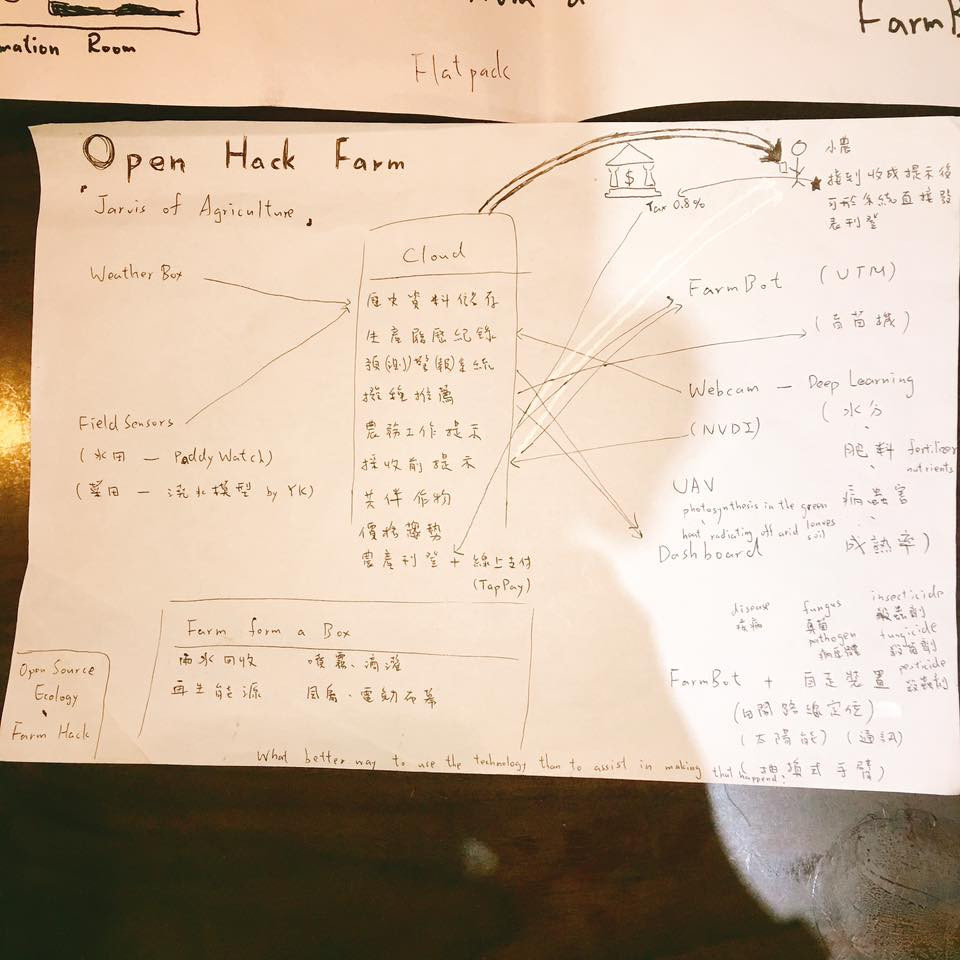 mation Room
Flatpack
FarmB
Open Hack Farm
「Jarvis of Agriculture」
$
Tax 0.8%
小農
★ 接到收成提示後
可於系統直接發
表刊登
Weather Box
Field Sensors
(水田 — PaddyWatch)
(菜田 — 流水模型 by YK)
Cloud
歷史資料儲存
生產履歷紀錄
預(測)警(報)系統
推薦
農務工作提示
採收前提示
共伴作物
價格趨勢
農產刊登 + 線上支付
(TapPay)
FarmBot (UTM)
(育苗機)
Webcam — Deep Learning
(NVDI)
(水分、
肥料、 fertilizer nutrients
病蟲害、
成熟率)
UAV
photosynthesis in the green leaves
heat radiating off arid soil
Dashboard
disease
疾病
fungus
真菌
pathogen
病原體
insecticide
殺蟲劑
fungicide
殺菌劑
pesticide
殺蟲劑
FarmBot + 自走裝置
(田間路線定位)
(太陽能) (通訊)
式手臂)
Farm form a Box
雨水回收 噴霧、滴灌
再生能源 風扇、電動布幕
Open Source
Ecology
、
Farm Hack
What better way to use the technology than to assist in making that happend?